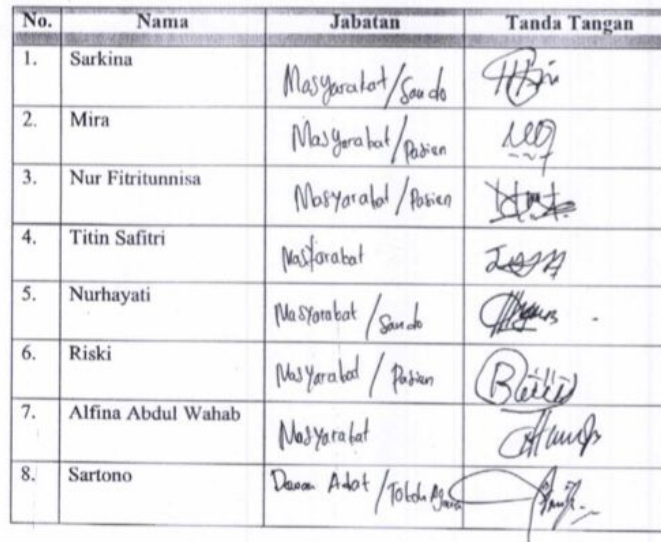 No. Nama Jabatan Tanda Tangan
1. Sarkina Masyarakat/Sando
2. Mira Masyarakat/Pasien
3. Nur Fitritunnisa Masyarakat/Pasien
4. Titin Safitri Masyarakat
5. Nurhayati Masyarakat/Sando
6. Riski Masyarakat/Pasien
7. Alfina Abdul Wahab Masyarakat
8. Sartono Dewan Adat/Tokoh Agama